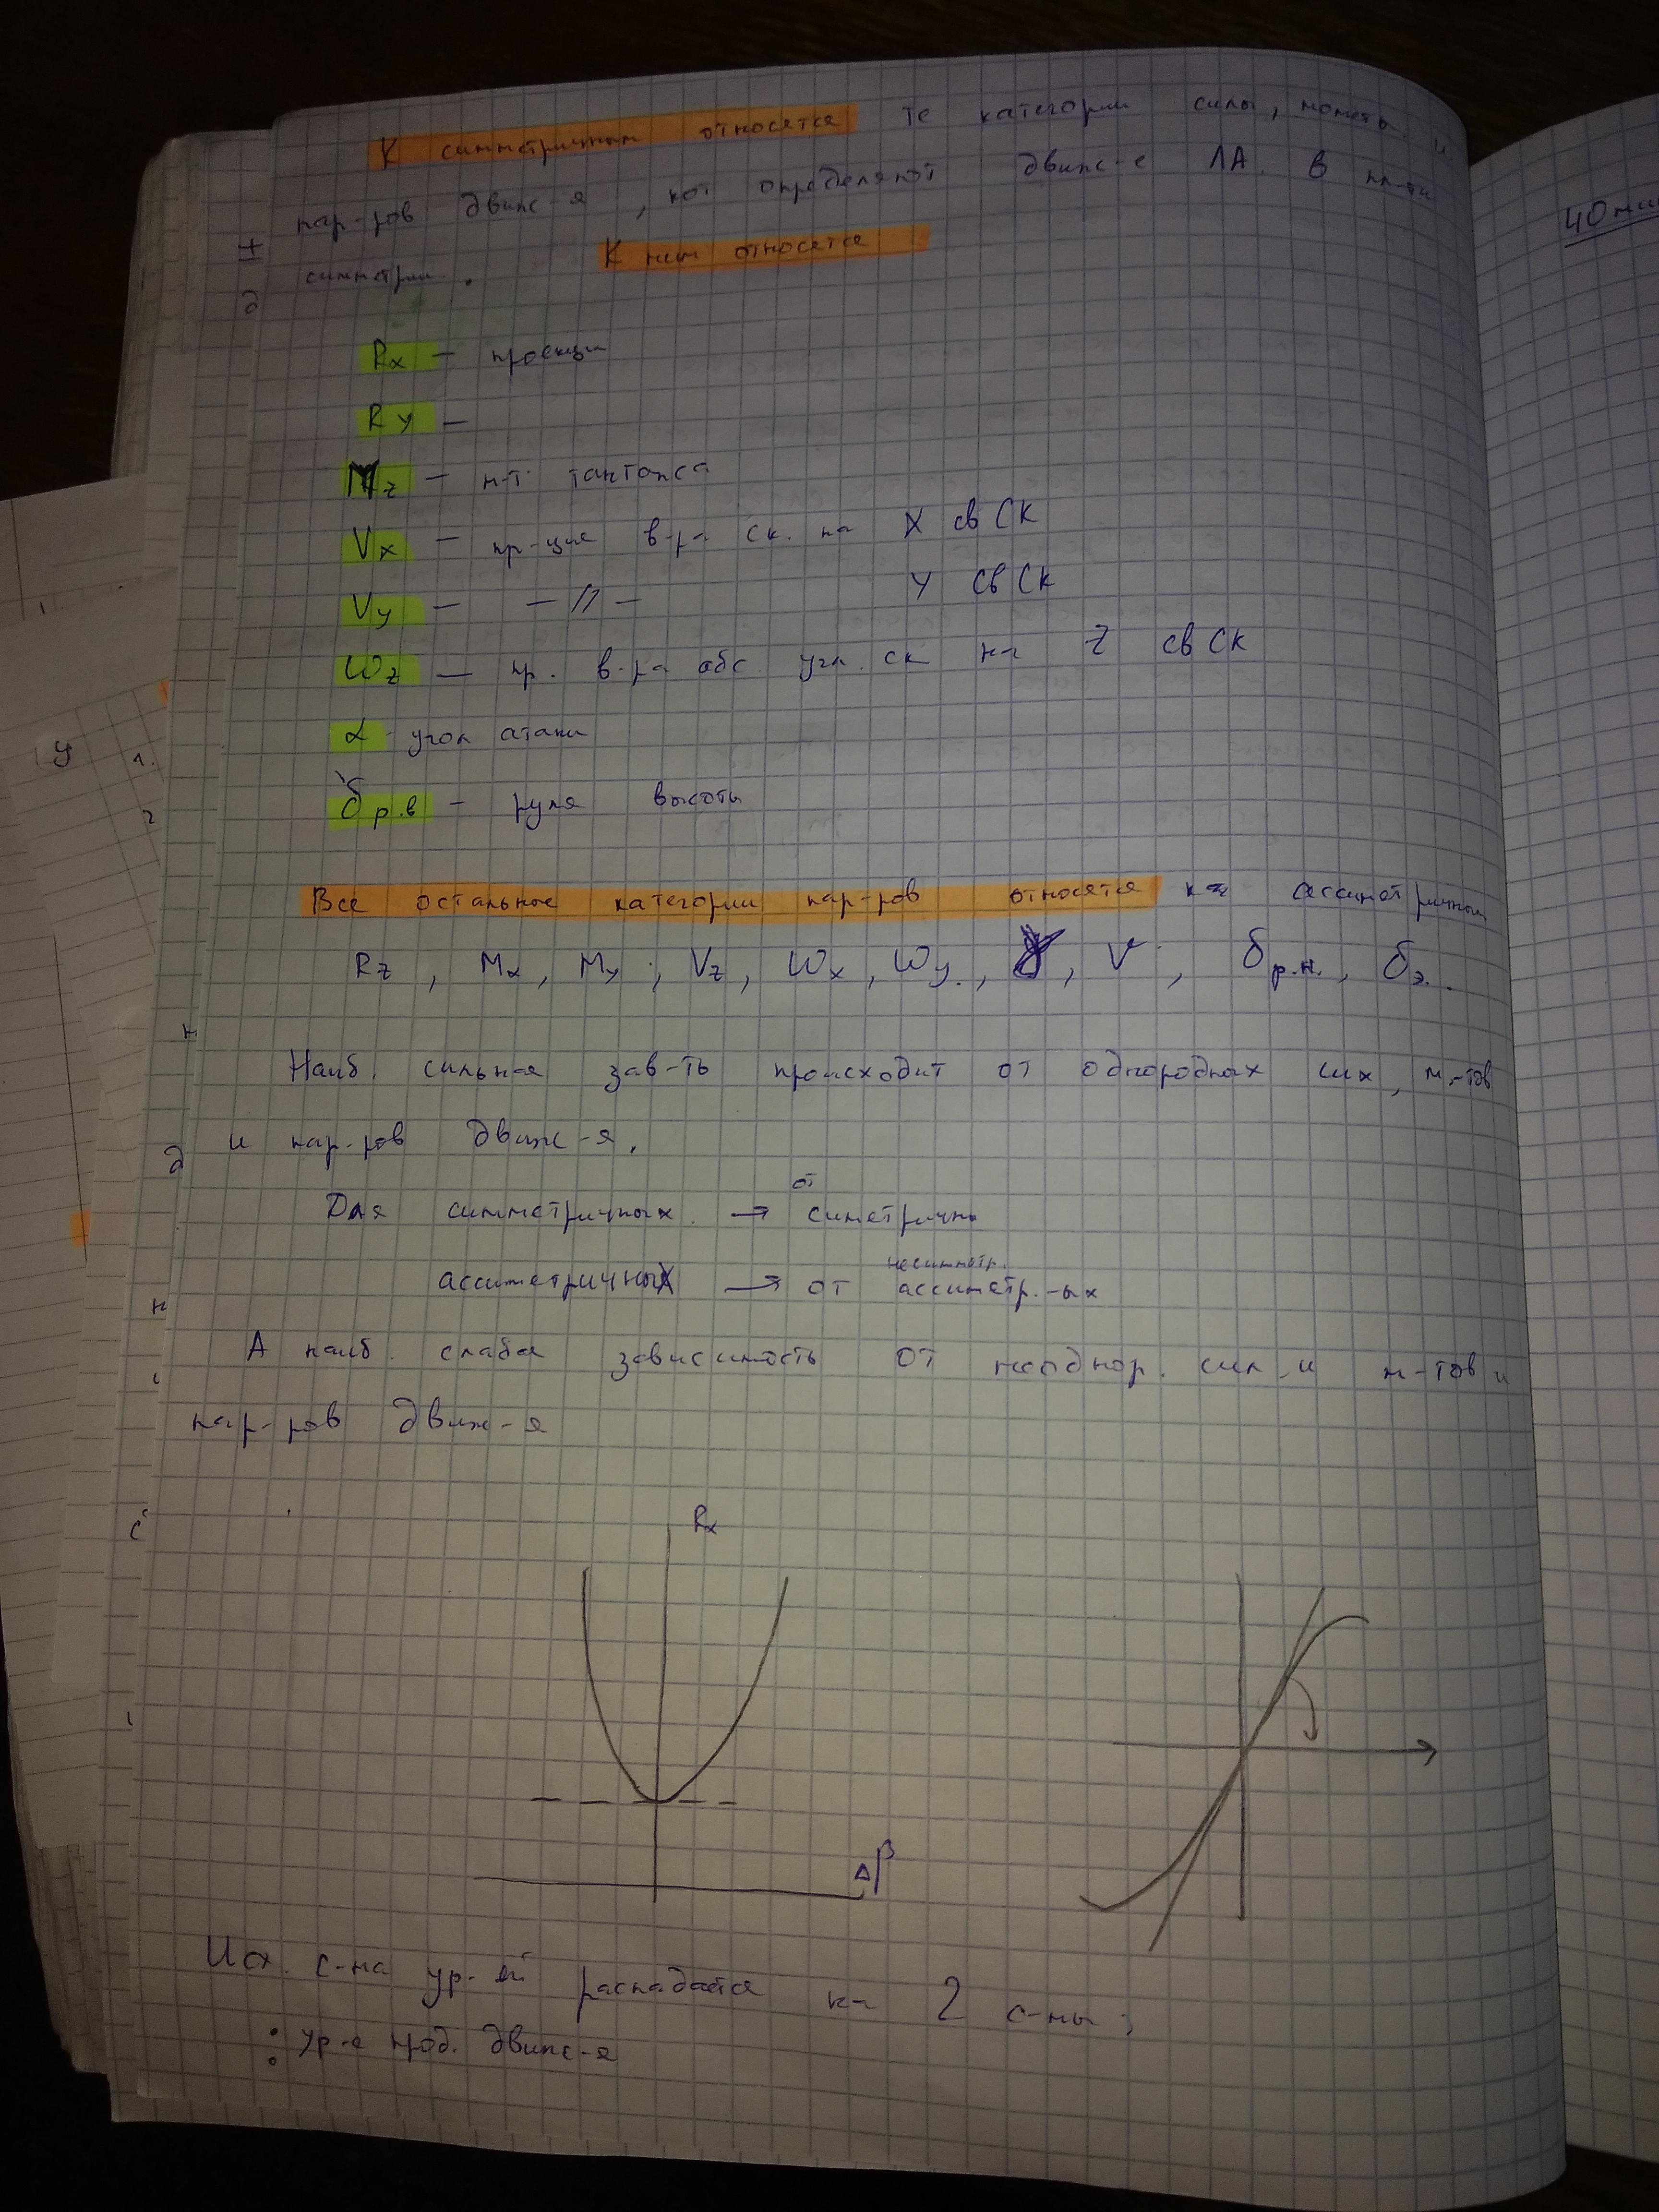 К симметричным относятся те категории силы, моменты и
пар-ров движ-я, кот определяют движ-е ЛА. в пл-ти
симметрии. К ним относятся
40 мин
Rx — проекции
Ry —
Mz — м-т тангажа
Vx — пр-ция в-ра ск. на X св СК
Vy — —//— Y св СК
Wz — пр. в-ра абс. угл. ск на Z св СК
α - угол атаки
δр.в — руля высоты
Все остальные категории пар-ров относятся к ассиметричным
Rz, Mx, My, Vz, Wx, Wy, γ, V, δр.н., δэ.
Наиб. сильная зав-ть происходит от однородных сих, м-тов
и пар-ров движ-я.
Для симметричных → от симетричн
ассиметричных → от ассиметр.-ых
несимметр.
А наиб. слабая зависимость от неоднор. сил и м-тов и
пар-ров движ-я
Rx
Δβ
Исх. с-ма ур-ий распадается на 2 с-мы:
: ур-е прод. движ-я